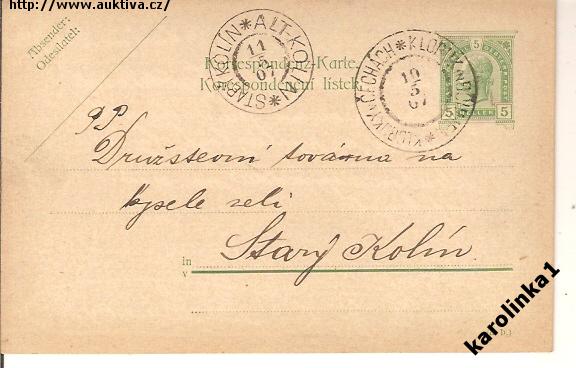 http://www.auktiva.cz/
Absender:
Odesílatel:
STARÝ KOLÍN * ALT-KOLIN *
11
5
07
Korrespondenz-Karte.
Korespondenční lístek.
10
5
07
5
HELLER
5
PP
Družstevní továrna na
kysele zelí
in
v
Starý Kolín.
karolinka1